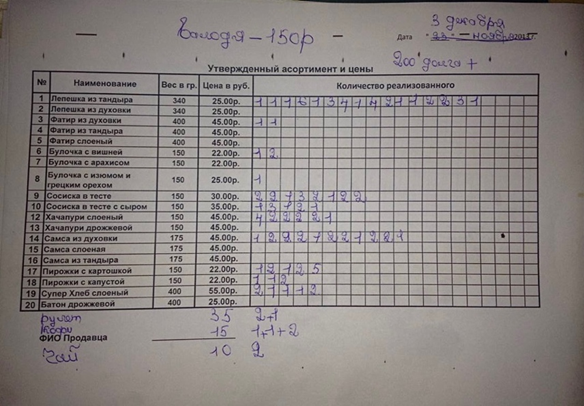 Володя – 150р
3 декабря
Дата 23 – ноября 201
200 долга +
Утвержденный асортимент и цены
№ Наименование Вес в гр. Цена в руб. Количество реализованного
1 Лепешка из тандыра 340 25.00р. 1 1 1 6 1 3 4 1 4 2 1 1 2 2 3 1
2 Лепешка из духовки 340 25.00р.
3 Фатир из духовки 400 45.00р. 1 1
4 Фатир из тандыра 400 45.00р.
5 Фатир слоеный 400 45.00р.
6 Булочка с вишней 150 22.00р. 1 2
7 Булочка с арахисом 150 22.00р.
8 Булочка с изюмом и грецким орехом 150 25.00р. 1
9 Сосиска в тесте 150 30.00р. 2 2 1 3 2 1 2 2
10 Сосиска в тесте с сыром 150 35.00р. 1 3 1 2 1
12 Хачапури слоеный 150 45.00р. 4 2 2 2 2 1
13 Хачапури дрожжевой 150 45.00р.
14 Самса из духовки 175 45.00р. 1 2 2 2 1 2 2 1 2 2 1
15 Самса слоеная 175 45.00р.
16 Самса из тандыра 175 45.00р.
17 Пирожки с картошкой 150 22.00р. 1 2 1 2 5
18 Пирожки с капустой 150 22.00р. 1 1 2
19 Супер Хлеб слоеный 400 55.00р. 2 1 1 1 2
20 Батон дрожжевой 400 25.00р.
рулет 35 2+1
кофе 15 1+1+2
ФИО Продавца
Чай 10 2